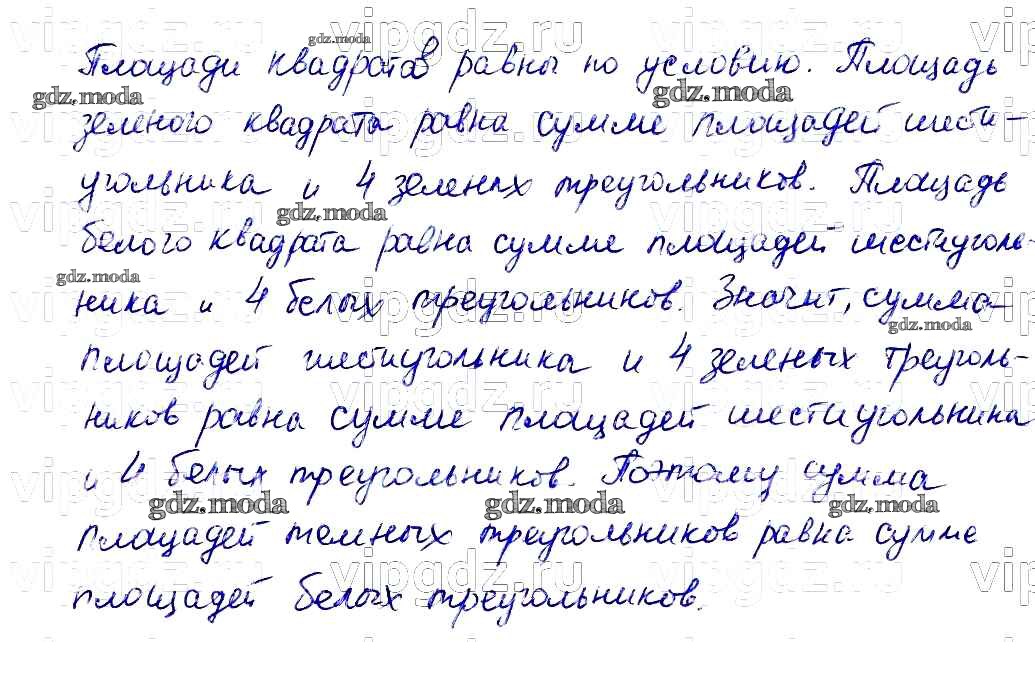 Площади квадратов равны по условию. Площадь
зеленого квадрата равна сумме площадей шести-
угольника и 4 зеленых треугольников. Площадь
белого квадрата равна сумме площадей шестиуголь-
ника и 4 белых треугольников. Значит, сумма
площадей шестиугольника и 4 зеленых треуголь-
ников равна сумме площадей шестиугольника
и 4 белых треугольников. Поэтому сумма
площадей темных треугольников равна сумме
площадей белых треугольников.